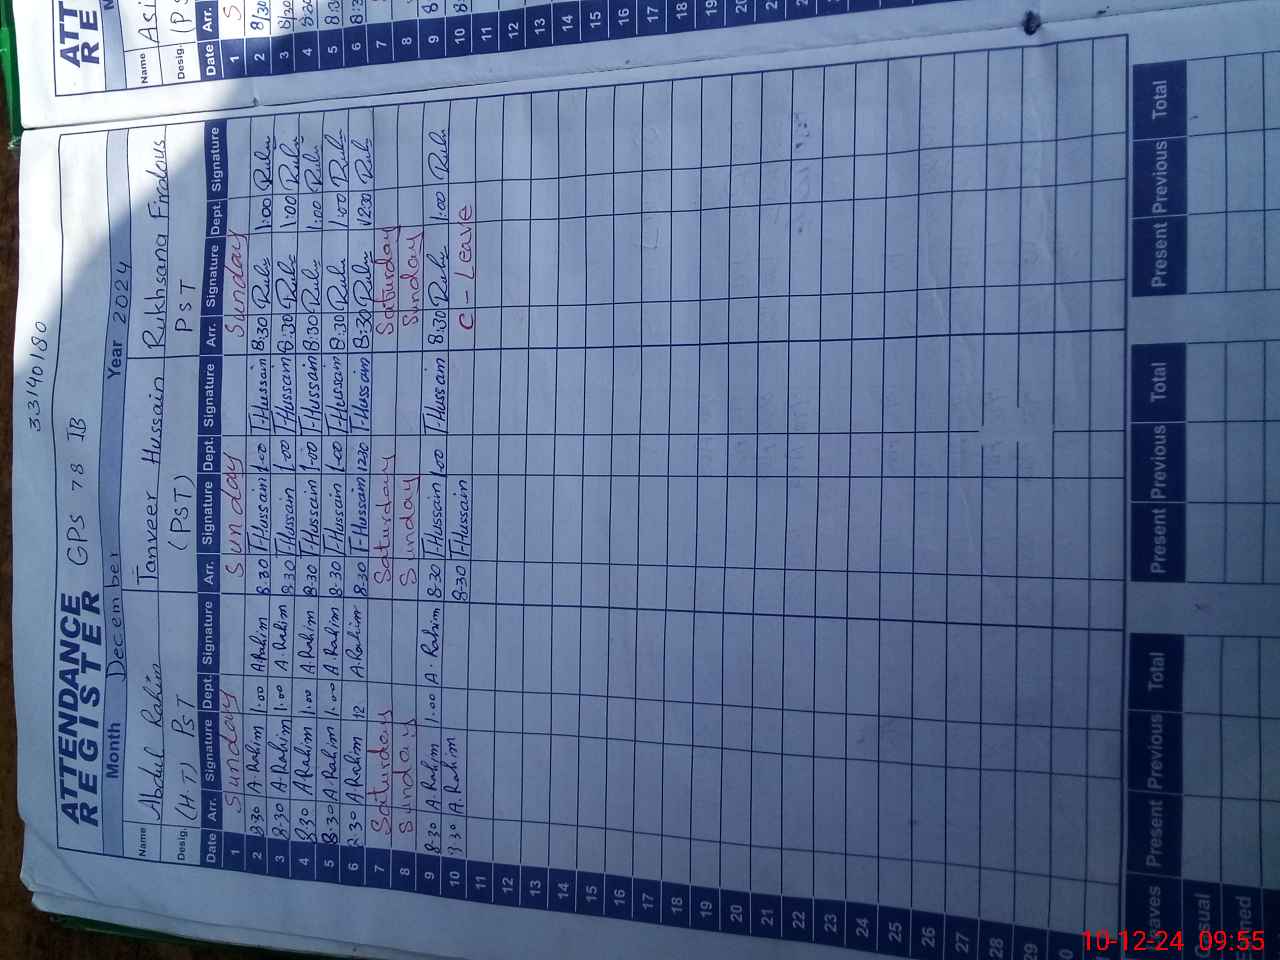 33140180
ATTENDANCE REGISTER GPS 78 IB
Month December Year 2024
Name Abdul Rahim Tanveer Hussain Rukhsana Firdous
Desig. (H.T) PST (PST) PST
Date Arr. Signature Dept. Signature Arr. Signature Dept. Signature Arr. Signature Dept. Signature
1 Sunday Sunday Sunday
2 8:30 A.Rahim 1:00 A.Rahim 8:30 T-Hussain 1:00 T-Hussain 8:30 1:00
3 8:30 A.Rahim 1:00 A.Rahim 8:30 T-Hussain 1:00 T-Hussain 8:30 1:00
4 8:30 A.Rahim 1:00 A.Rahim 8:30 T-Hussain 1:00 T-Hussain 8:30 1:00
5 8:30 A.Rahim 1:00 A.Rahim 8:30 T-Hussain 1:00 T-Hussain 8:30 1:00
6 A.Rahim 12 A.Rahim 8:30 T-Hussain 1230 T-Hussain 8:30 12:30
7 Saturday Saturday Saturday
8 Sunday Sunday Sunday
9 8:30 A.Rahim 1:00 A.Rahim 8:30 T-Hussain 1:00 T-Hussain 8:30 1:00
10 A.Rahim 8:30 T-Hussain C-Leave
11
12
13
14
15
16
17
18
19
20
21
22
23
24
25
26
27
28
29
Present Previous Total Present Previous Total Present Previous Total
10-12-24 09:55